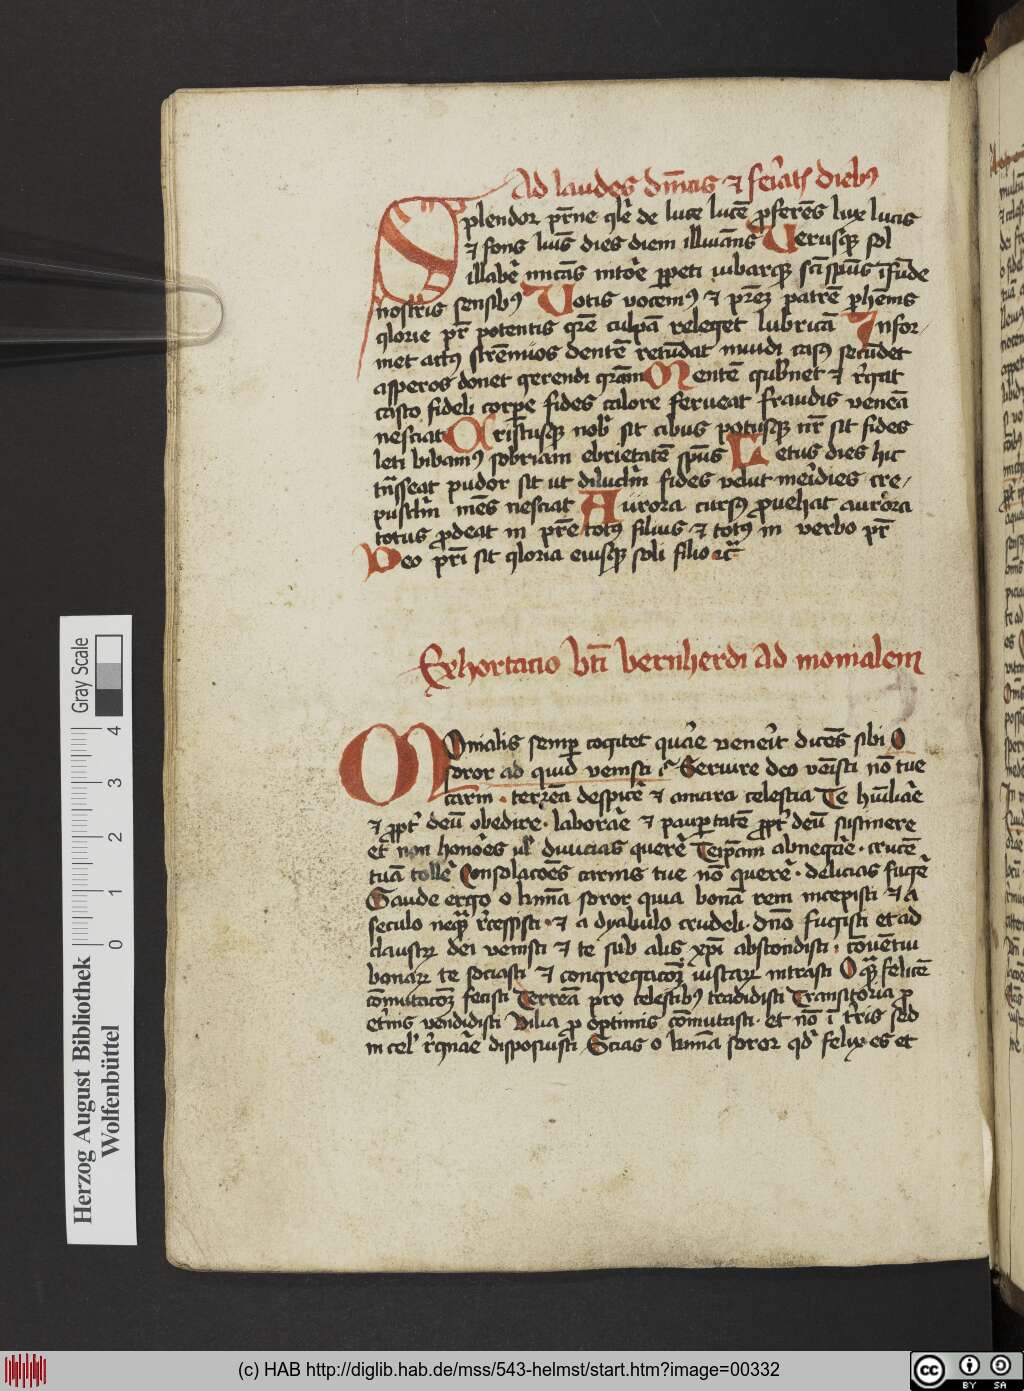 Ad laudes dn̄icis ⁊ feriat' diebꝰ
Splendor pr̄ne glē de luce lucē ꝓferēs lux lucis
⁊ fons luīs dies diem illuiāns Verusqꝫ sol
illabē micās nitōe ꝑpeti iubarqꝫ sc̄i spūs īfūde
nostris sensibꝰ Votis vocemꝰ ⁊ pr̄eꝫ patrē ꝑhēnis
glorie pr̄ potentis gr̄e culpā releget lubricā Infor-
met actꝰ strēnuos dentē retūdat inuidi casꝰ secūdet
asperos donet gerendi grām Mentē gub'net ⁊ r'gat
casto fideli corpe fides calore ferueat fraudis venēa
nesciat Xristusqꝫ nob' sit cibus potusqꝫ nr̄ sit fides
leti bibamꝰ sobriam ebrietatē spūs Letus dies hic
trāsseat pudor sit ut diluclm̄ fides velut meridies cre-
pusclm̄ mēs nesciat Aurora cursꝰ ꝓuehat aurora
totus ꝓdeat in pr̄e totꝰ filius ⁊ totꝰ in verbo pr̄
Deo pr̄i sit gloria eiusqꝫ soli filio ⁊c̄
Exhortacio bt̄i bernherdi ad monialem
MOnialis semꝑ cogitet quāe venerit dicēs sibi O
soror ad quid venisti ⁊ Seruire deo vēisti nō tue
carni · terrēa despicē ⁊ amara celestia Te hūiliāe
⁊ ꝓpt' deū obedire · laborāe ⁊ pauꝑtatē ꝓpt' deū sustinere
et non honōes ul' diuicias querē Teip̄am abnegāe · crucē
tuā tollē Consolacōes carnis tue nō querē · delicias fugē
Gaude ergo o km̄a soror quia bonā rem incepisti ⁊ a
seculo neqꝫ r'cessisti · ⁊ a dyabulo crudeli · dn̄o fugisti et ad
claustꝝ dei venisti ⁊ te sub alis xp̄i abscondisti · cōuētui
bonaꝝ te sociasti ⁊ congregacōꝫ iustaꝝ intrasti O qꝫ felicē
cōmutacōꝫ fecisti Terrēa pro celestibꝰ tradidisti Transitoria ꝓ
et'nis vendidisti Vilia ꝓ optimis cōmutasti · et nō ī t'ris sed
in cel' r'gnāe disposuisti Scias o km̄a soror qd' felix es et
Herzog August Bibliothek
Wolfenbüttel
0 1 2 3 4
Gray Scale
(c) HAB http://diglib.hab.de/mss/543-helmst/start.htm?image=00332
cc BY SA